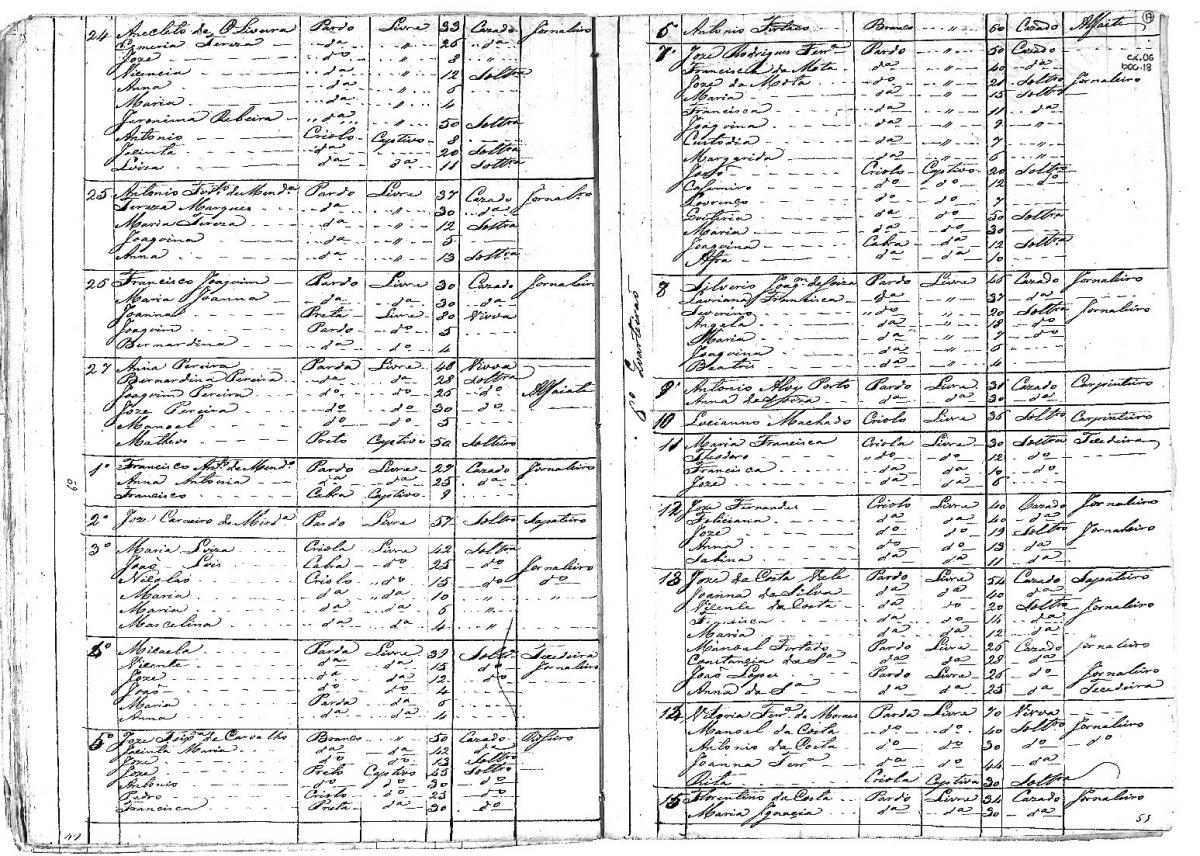 24 Anecleto de Oliveira Pardo Livre 33 Cazado Jornaleiro
Esmeria Tereza da " 26 da
Joze do " 8 "
Vicencia da " 12 Soltra
Anna da " 6
Maria da " 4
Jeronima Ribeira da " 50 Soltra
Antonio Criolo Captivo 8
Jacinta da da 20 Soltra
Luiza da da 11 Soltra
25 Antonio de Mendª Pardo Livre 37 Cazado Jornalro
Tereza Marques da " 30 da
Maria Tereza da " 12 Soltra
Joaquina da " 5
Anna da " 13 Soltra
26 Francisco Joaquim Pardo Livre 30 Cazado Jornaleiro
Maria Joanna da da 30 da
Joanna Preta Livre 80 Viuva
Joaquim Pardo do 5
Bernardina da do 4
27 Anna Pereira Parda Livre 48 Viuva
Bernardina Pereira da da 28 Soltra
Joaquim Pereira do do 26 do Alfaiate
Joze Pereira do do 30 do
Manoel do do 5
Matheos Preto Captivo 50 Solteiro
1º Francisco Antº de Mendª Pardo Livre 29 Cazado Jornaleiro
Anna Antonia da da 25 da
Francisco Cabra Captivo 9
2º Joze Carneiro de Pardo Livre 57 Soltro Sapateiro
3º Maria Luiza Criola Livre 42 Soltra
João Luis Cabra do 25 do Jornaleiro
Nicolao Criolo do 15 do do
Maria da da 10 "
Maria da da 6 "
Marcelina da da 4 "
4º Micaela Parda Livre 39 Soltra Tecedeira
Vicente da da 15 do Jornaleiro
Joze do da 12 do
João do do 4
Maria Parda da 6
Anna da da 4
5º Joze de Carvalho Branco " 50 Cazado
Jacinta Maria da da 42 da
Joze do do 13 Soltro
Joze Preto Captivo 45 Soltro
Antonio do do 30
Pedro Criolo do 25 do
Francisca Preta da 30 do
59
42
17
cx.06
doc.18
6º Antonio Furtado Branco " 60 Cazado Alfaite
7º Joze Rodrigues Ferrª Pardo " 50 Cazado
Francisca da Mota da " 40 da
Joze da Motta do " 21 Soltro Jornaleiro
Maria da " 15 Soltra
Francisca da " 11 da
Joaquina da " 9 "
Custodia da " 7 "
Margarida da " 6 "
João Criolo Captivo 20 Soltro
Casemiro do do 12 do
Lourenço do do 7
Euzebia da da 50 Soltra
Maria da da 30
Joaquina Cabra da 12 Soltra
Afra da da 10
6º Quarteirão
8 Silverio Joaqm de Soiza Pardo Livre 46 Cazado Jornaleiro
Francisca da " 37 da
Severino do " 20 Soltro Jornaleiro
Angela da " 18 da
Maria da "
Joaquina da " 6
Beatris da " 4
9º Antonio Alvz Porto Pardo Livre 31 Cazado Carpinteiro
Anna de Souza da do 30 do
10 Lucianno Machado Criolo Livre 36 Soltro Carpinteiro
11 Maria Francisca Criola Livre 30 Soltra Tecedeira
Theodoro do do 12 do
Francisca da da 10
Joze do do 6
12 Joze Fernandes Criolo Livre 40 Cazado Jornaleiro
Feliciana da da 40 da
Joze do do 19 Soltro Jornaleiro
Anna da da 13 da
Sabina da da 11 da
13 Joze da Costa Vale Pardo Livre 54 Cazado Sapateiro
Joanna da Silva da da 40 da
Vicente da Costa da do 20 Soltro Jornaleiro
Francisca da da 14 da
Maria da da 12 da
Manoel Furtado Pardo Livre 26 Cazado Jornaleiro
Constancia da Sª da da 28 da
João Lopes Pardo Livre 26 do Jornaleiro
Anna da Sª da da 25 da Tecedeira
14 Vitoria Ferrª de Moraes Parda Livre 70 Viuva
Manoel da Costa do do 40 Soltro Jornaleiro
Antonio da Costa do do 30 do do
Joanna Ferrª da da 44 da
Rita Criola Captiva 30 Soltra
15 Florentino da Costa Pardo Livre 34 Cazado Jornaleiro
Maria Ignacia da da 30 da
55